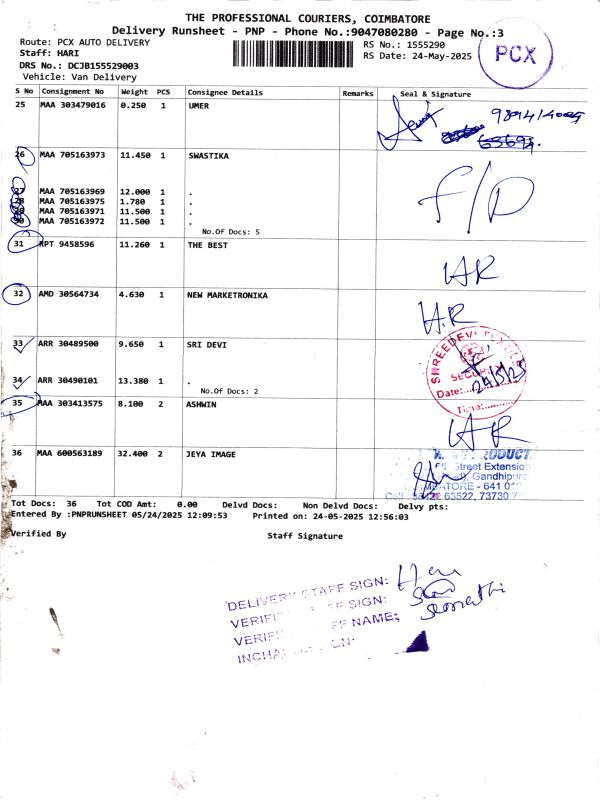 THE PROFESSIONAL COURIERS, COIMBATORE
Delivery Runsheet - PNP - Phone No.:9047080280 - Page No.:3
Route: PCX AUTO DELIVERY
Staff: HARI
DRS No.: DCJB155529003
Vehicle: Van Delivery
RS No.: 1555290
RS Date: 24-May-2025
PCX
S No Consignment No Weight PCS Consignee Details Remarks Seal & Signature
25 MAA 303479016 0.250 1 UMER
26 MAA 705163973 11.450 1 SWASTIKA
27 MAA 705163969 12.000 1 .
28 MAA 705163975 1.780 1 .
29 MAA 705163971 11.500 1 .
30 MAA 705163972 11.500 1 .
No.Of Docs: 5
F/D
31 RPT 9458596 11.260 1 THE BEST
HR
32 AMD 30564734 4.630 1 NEW MARKETRONIKA
H.R
33 ARR 30489500 9.650 1 SRI DEVI
34 ARR 30490101 13.380 1 .
No.Of Docs: 2
SHREEDEVI TEXTILE
SECURITY
Date: 24/5/25
Time:
35 MAA 303413575 8.100 2 ASHWIN
HR
36 MAA 600563189 32.400 2 JEYA IMAGE
Street Extension
Gandhipur
63522, 73730
Tot Docs: 36 Tot COD Amt: 0.00 Delvd Docs: Non Delvd Docs: Delvy pts:
Entered By :PNPRUNSHEET 05/24/2025 12:09:53 Printed on: 24-05-2025 12:56:03
Verified By Staff Signature
DELIVERY STAFF SIGN:
SIGN:
NAME: